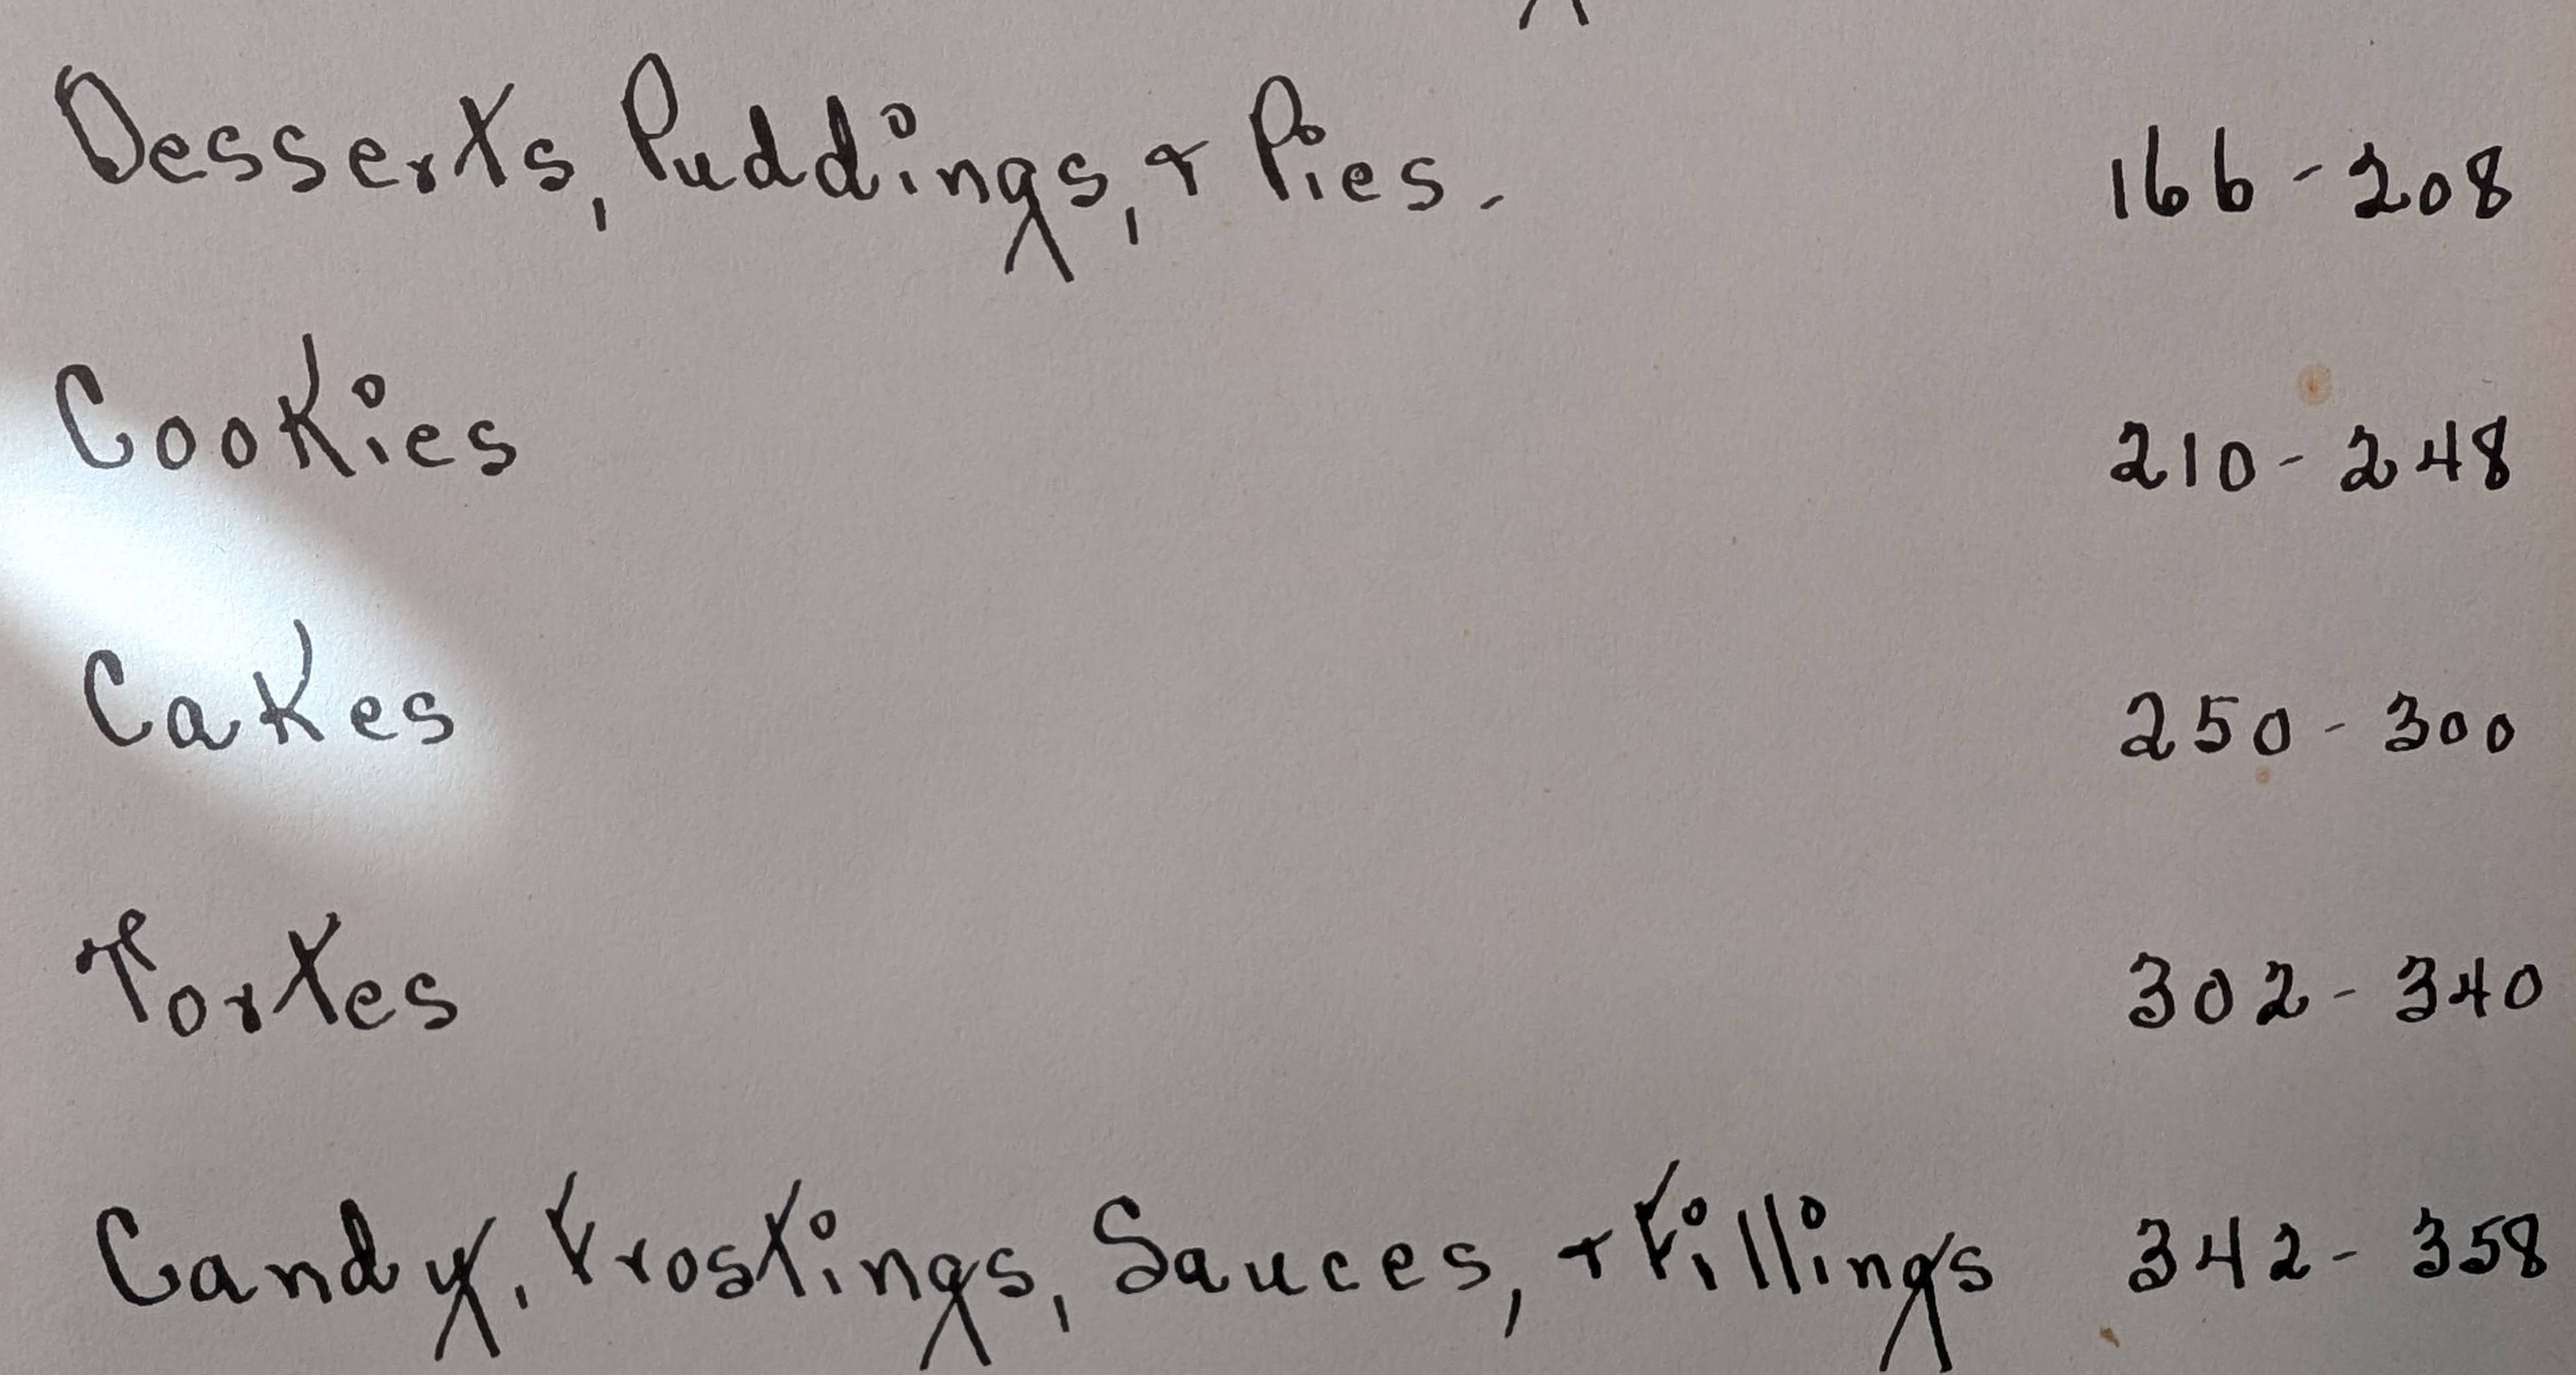 Desserts, Puddings, + Pies. 166-208
Cookies 210-248
Cakes 250-300
Tortes 302-340
Candy, Frostings, Sauces, + Fillings 342-358